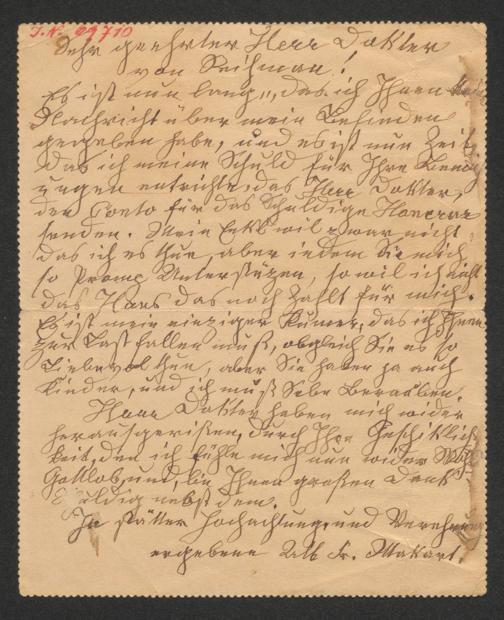 J.N. 99710
Sehr geehrter Herr Dokter
von Reihman!
Es ist nun lang, das ich Ihnen
Nachricht über mein Befinden
gegeben habe, und es ist nun Zeit,
das ich meine Schuld für Ihre Bemü
ungen entrichte, das Herr Dokter,
den Conto für das schuldige Honorar
senden. Mein wil zwar nicht
das ich es thue, aber indem Sie mich
so Promp Unterstüzen, so wil ich nicht
das Hans das noch zahlt für mich.
Es ist mein einziger Kumer, das ich Ihnen
zur Last fallen muß, obgleich Sie es so
Liebevol thun, aber Sie haben ja auch
Kinder, und ich muß Selbe Berauben.
Herr Dokter haben mich wider
herausgerißen, durch Ihre Geschiklich
keit, den ich fühle mich nun wider
Gottlob, und bin Ihnen großen Dank
schuldig nebst dem.
In stätter Hochachtung, und Verehrung
ergebene Fr. Makart.